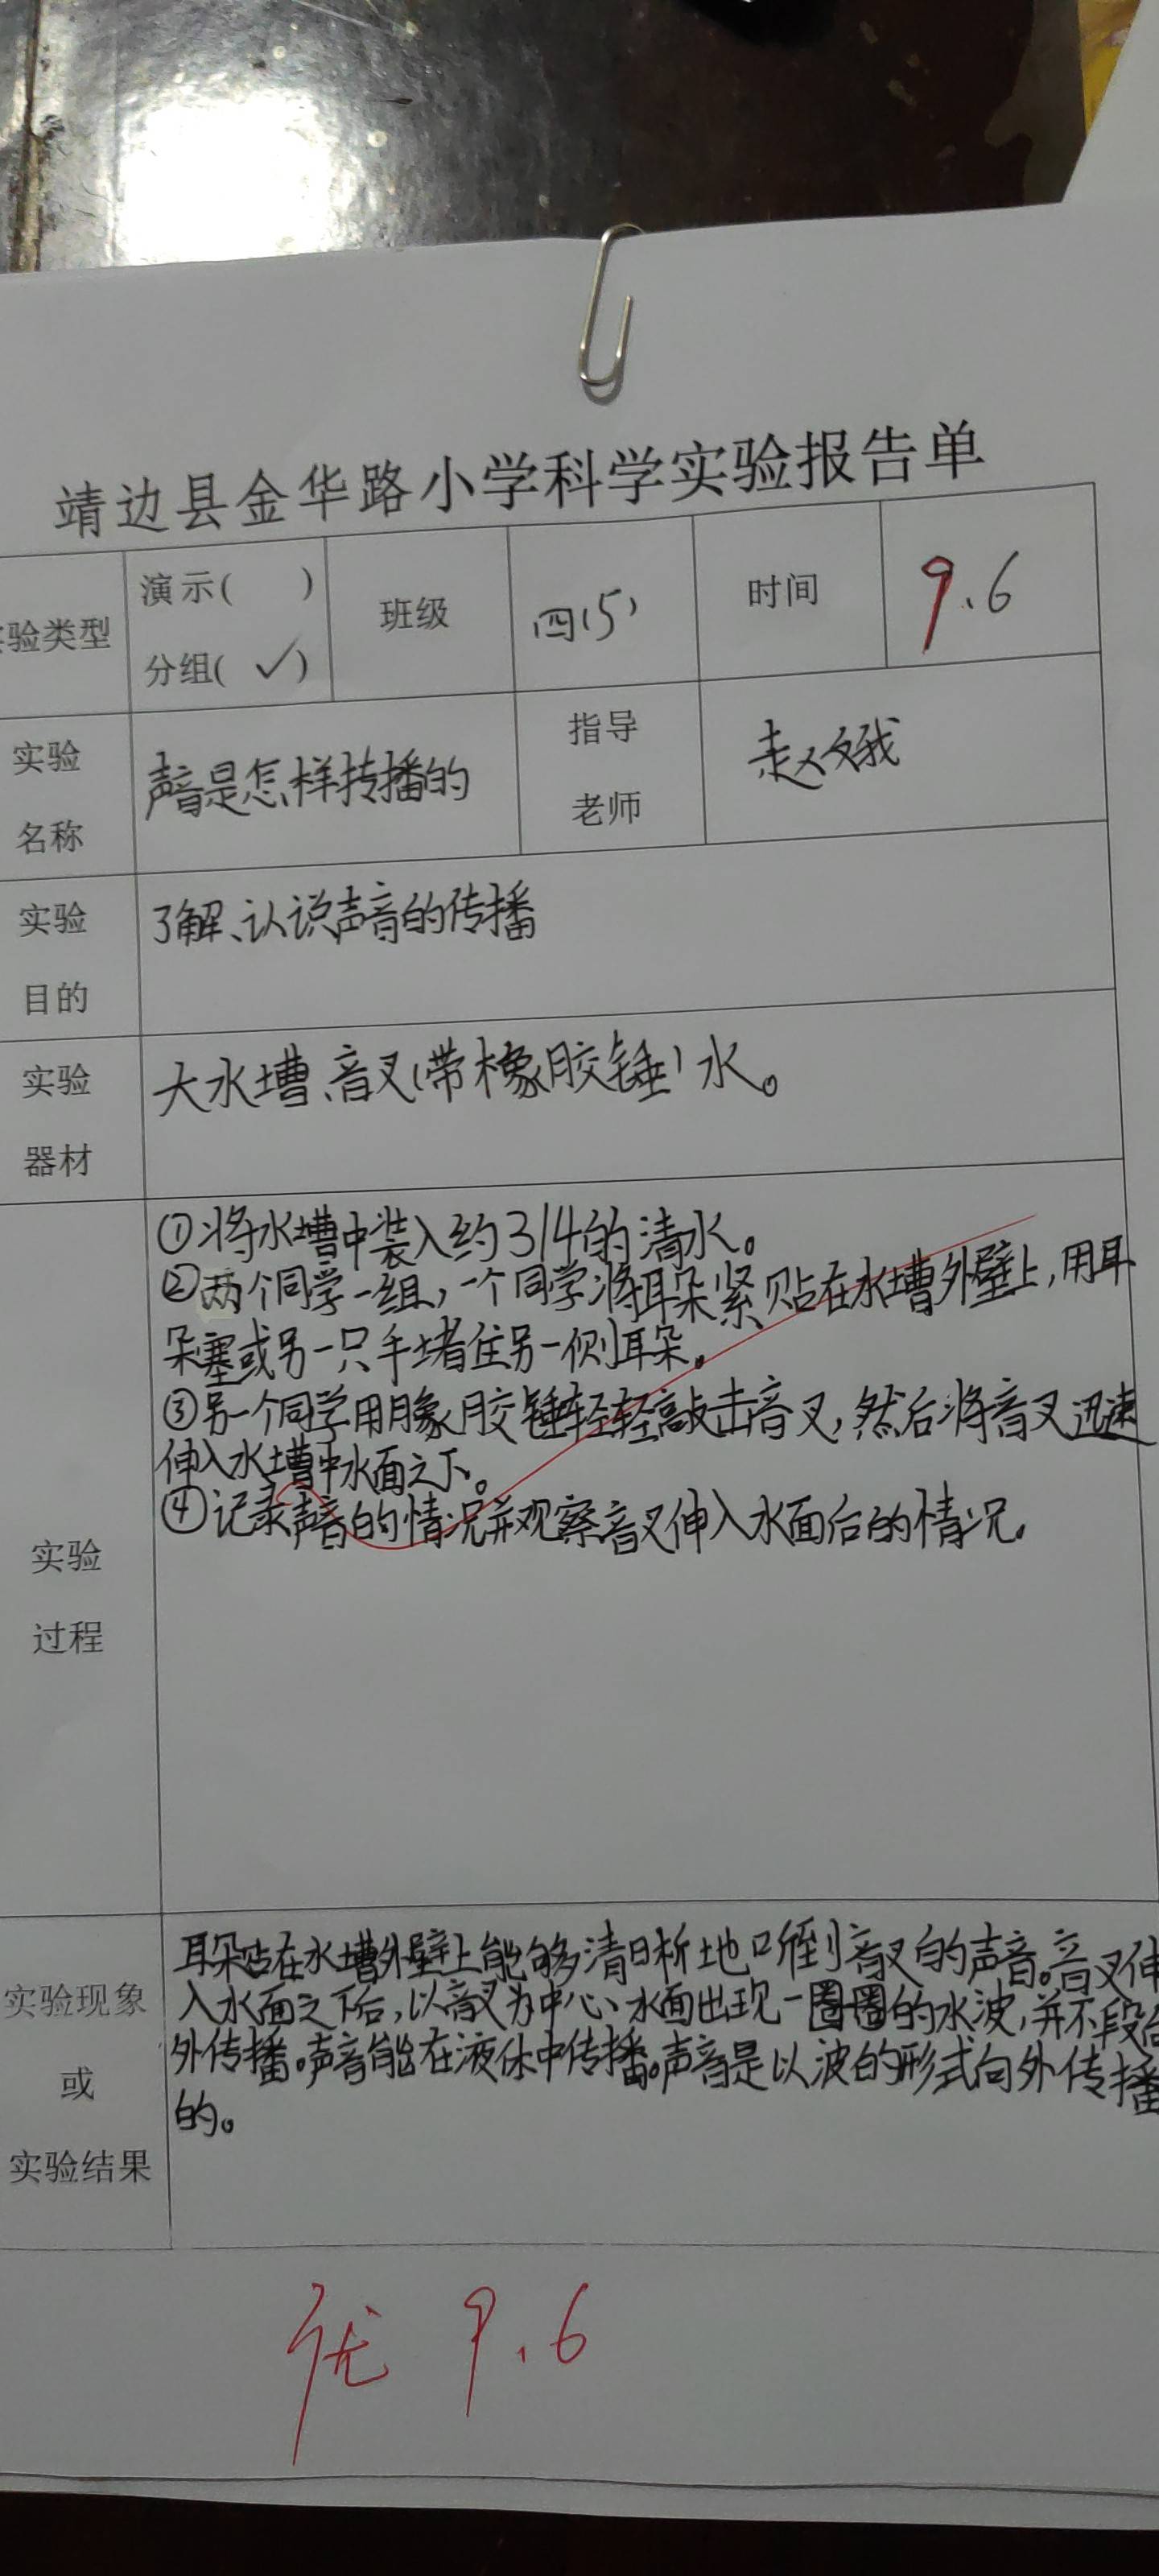 靖边县金华路小学科学实验报告单
验类型 演示( ) 班级 四(5) 时间 9.6
分组( ✓ )
实验 声音是怎样传播的 指导 赵文娥
名称 老师
实验 了解、认识声音的传播
目的
实验 大水槽、音叉(带橡胶锤)水。
器材
①将水槽中装入约3/4的清水。
②两个同学一组,一个同学将耳朵紧贴在水槽外壁上,用耳
朵塞或另一只手堵住另一侧耳朵。
③另一个同学用橡胶锤轻轻敲击音叉,然后将音叉迅速
伸入水槽中水面之下。
④记录声音的情况并观察音叉伸入水面后的情况。
实验
过程
耳朵贴在水槽外壁上能够清晰地听到音叉的声音。音叉伸
入水面之下后,以音叉为中心、水面出现一圈圈的水波,并不段
外传播。声音能在液体中传播。声音是以波的形式向外传播
的。
实验现象
或
实验结果
优 9.6